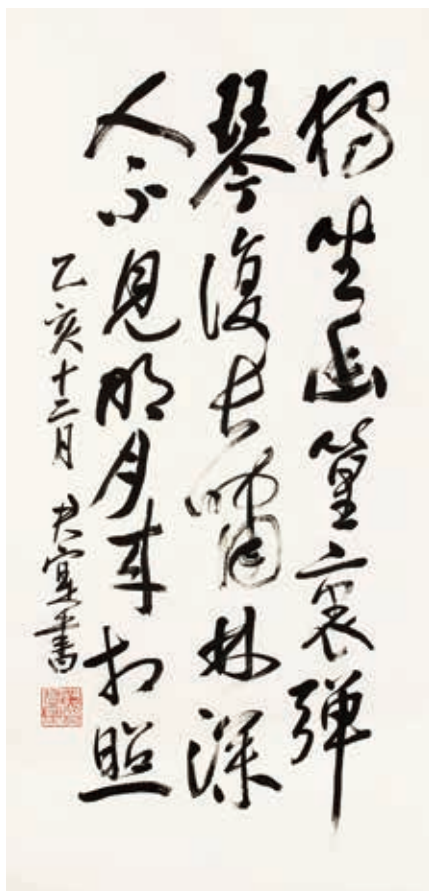 獨坐幽篁裏弹
琴復長嘯林深
人不見明月来相照
乙亥十二月 書